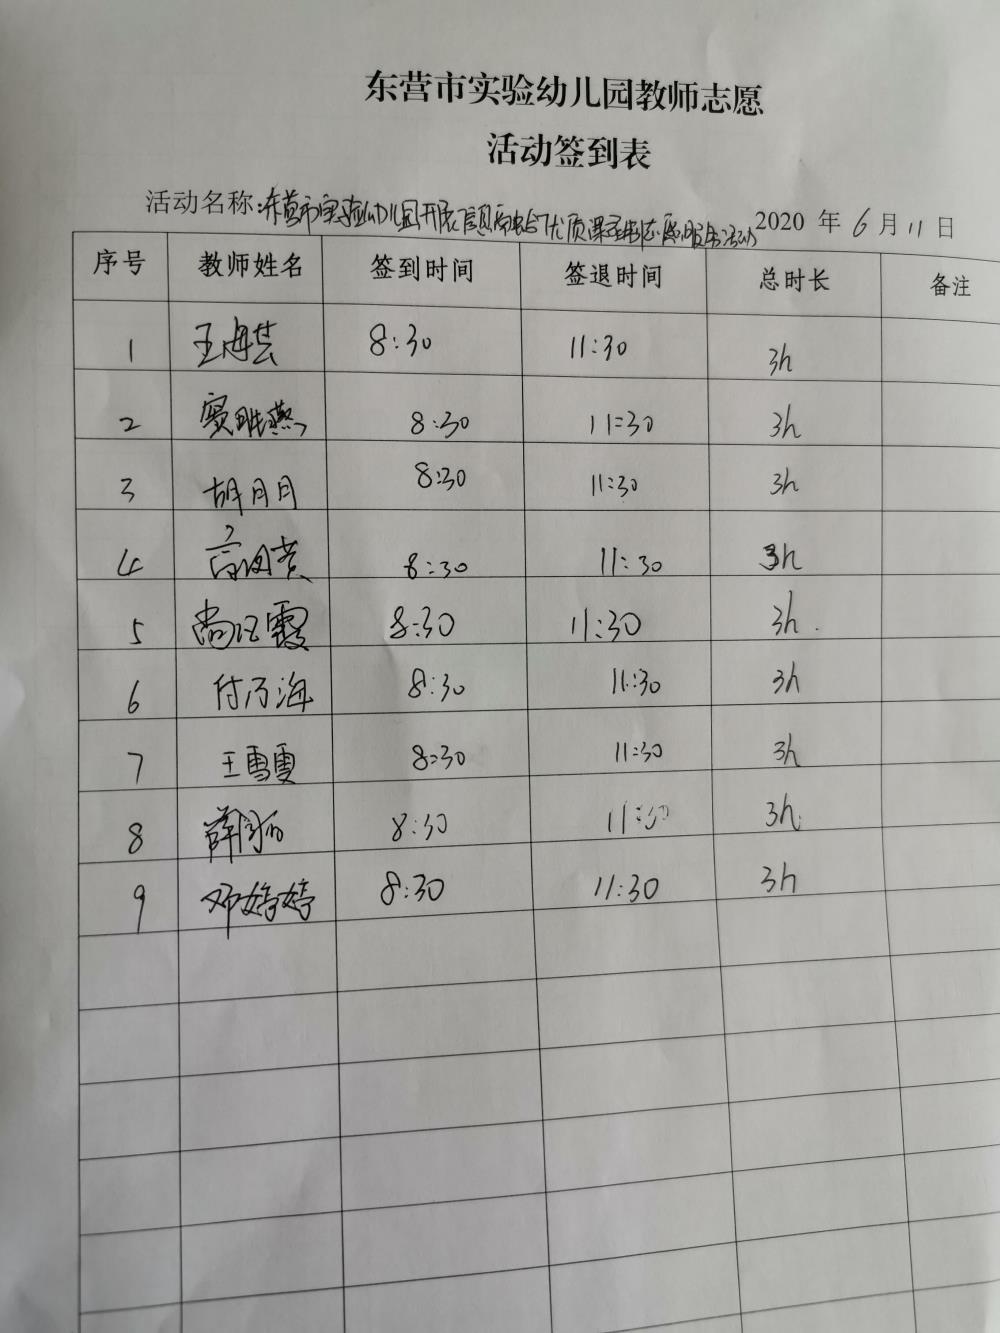 东营市实验幼儿园教师志愿
活动签到表
活动名称:东营市实验幼儿园开展信息 优质课 志愿服务活动 2020 年 6 月 11 日
序号 教师姓名 签到时间 签退时间 总时长 备注
1 王海芸 8:30 11:30 3h
2 燕 8:30 11:30 3h
3 胡月月 8:30 11:30 3h
4 8:30 11:30 3h
5 尚 霞 8:30 11:30 3h.
6 付乃海 8:30 11:30 3h
7 王雪雯 8:30 11:30 3h
8 薛 8:30 11:30 3h
9 邓婷婷 8:30 11:30 3h